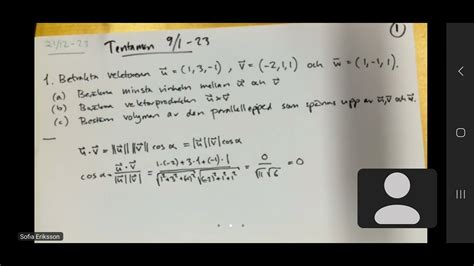 21/12-23 Tentamen 9/1-23 ①
1. Betrakta vektorerna u⃗ = (1,3,-1), v⃗ = (-2,1,1) och w⃗ = (1,-1,1).
(a) Beräkna minsta vinkeln mellan u⃗ och v⃗
(b) Beräkna vektorprodukten u⃗×v⃗
(c) Bestäm volymen av den parallellepiped som spänns upp av u⃗, v⃗ och w⃗.
u⃗·v⃗ = ||u⃗|| ||v⃗|| cos α = |u⃗||v⃗| cos α
cos α = u⃗·v⃗ / |u⃗||v⃗| = 1·(-2)+3·1+(-1)·1 / √1²+3²+(-1)² √(-2)²+1²+1² = 0 / √11 √6 = 0
Sofia Eriksson